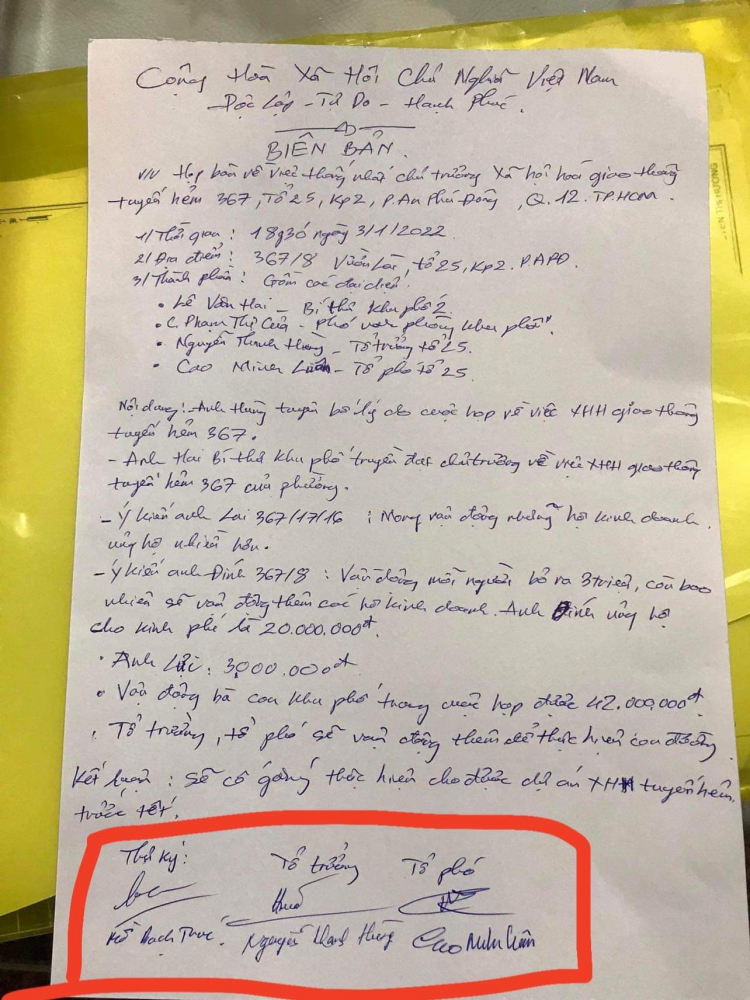 Cộng Hoà Xã Hội Chủ Nghĩa Việt Nam
Độc Lập - Tự Do - Hạnh Phúc.
BIÊN BẢN.
V/v Họp bàn về việc thống nhất chủ trương xã hội hoá giao thông
tuyến hẻm 367, Tổ 25, Kp2, P. An Phú Đông, Q. 12. TP.HCM.
1/ Thời gian: 18g30 ngày 3/1/2022
2/ Địa điểm: 367/8 Vườn Lài, tổ 25, Kp2. P.APĐ.
3/ Thành phần: Gồm các đại diện.
• Lê Văn Hai - Bí thư khu phố 2
• C. Phạm Thị Của - Phó văn phòng khu phố".
• Nguyễn Thanh Hùng - Tổ trưởng tổ 25.
• Cao Minh Luân - Tổ phó tổ 25.
Nội dung: - Anh Hùng tuyên bố lý do cuộc họp về việc XHH giao thông
tuyến hẻm 367.
- Anh Hai Bí thư khu phố truyền đạt chủ trương về việc XHH giao thông
tuyến hẻm 367 của phường.
- Ý kiến anh Lai 367/17/16 : Mong vận động những hộ kinh doanh
ủng hộ nhiều hơn.
- Ý kiến anh Đính 367/8 : Vận động mỗi người bỏ ra 3 triệu, còn bao
nhiêu sẽ vận động thêm các hộ kinh doanh. Anh Đính ủng hộ
cho kinh phí là 20.000.000đ.
• Anh Lài: 3000.000đ.
• Vận động bà con khu phố trong cuộc họp được 42.000.000đ.
. Tổ trưởng, tổ phó sẽ vận động thêm để thực hiện con đường.
Kết luận : sẽ cố gắng thực hiện cho được dự án XHH tuyến hẻm,
trước tết.
Thư Ký: Tổ trưởng Tổ phó
Bạch Nguyễn Thanh Hùng Cao Minh Luân